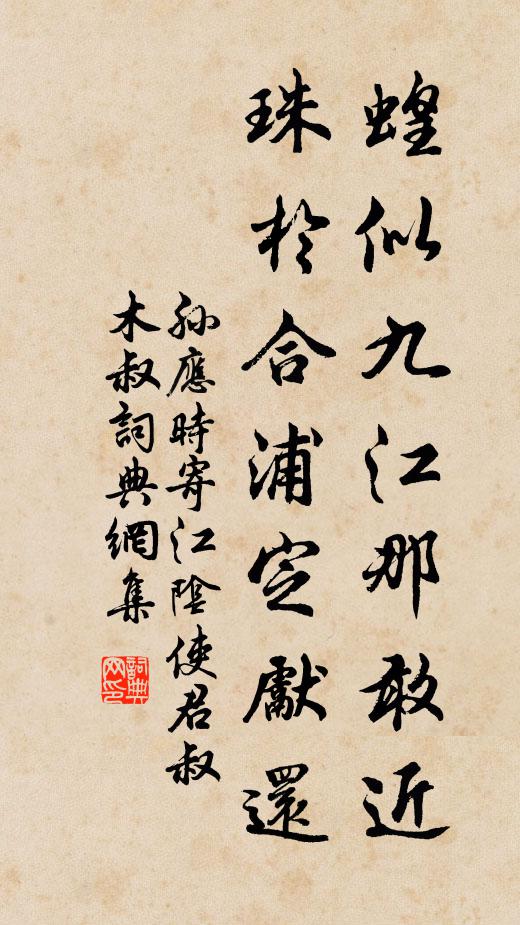 蝗似九江那敢近
珠於合浦定獻還
孫應時寄江陰使君叔
木叔詞典網集
詞典
网印